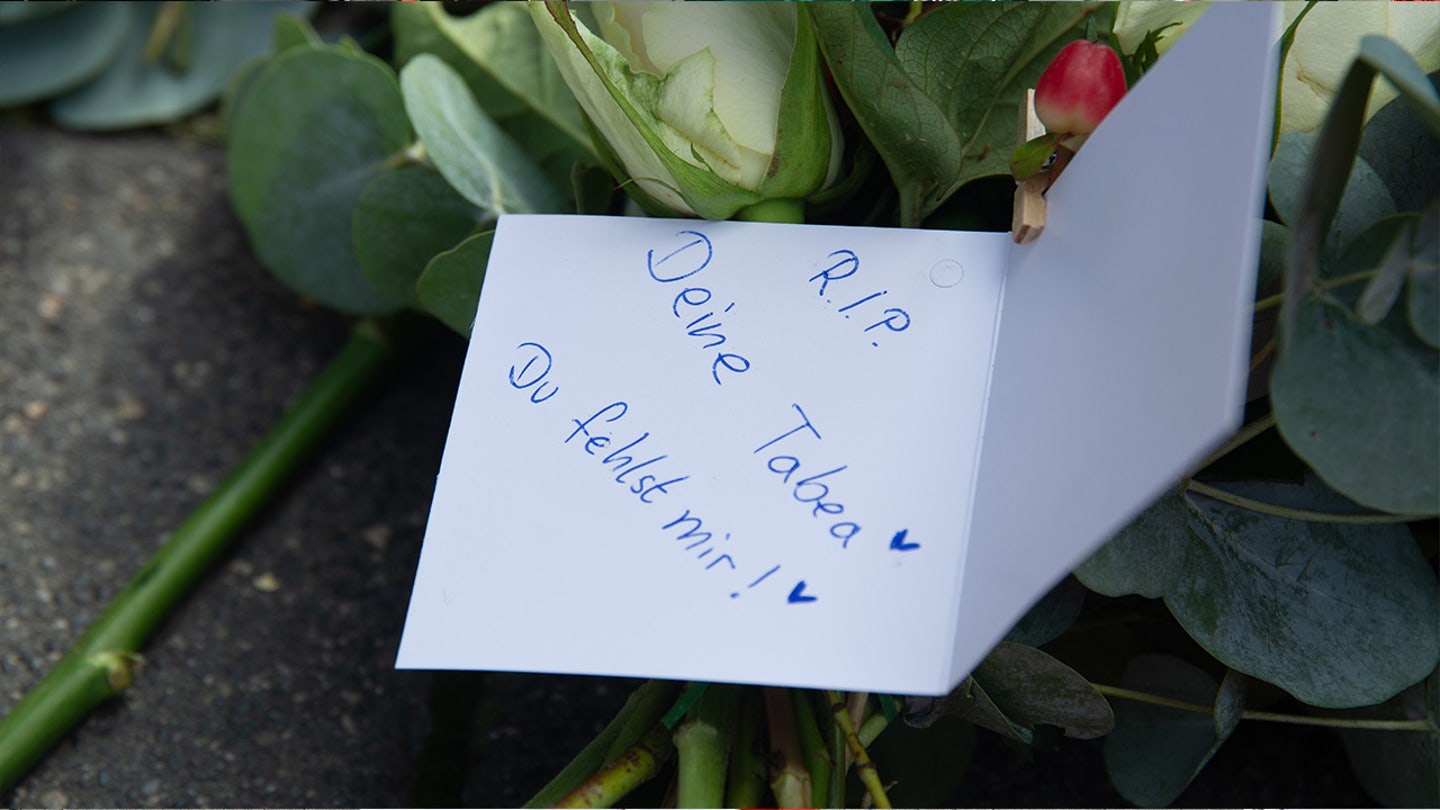 R.I.P.
Deine Tabea ♥
Du fehlst mir! ♥